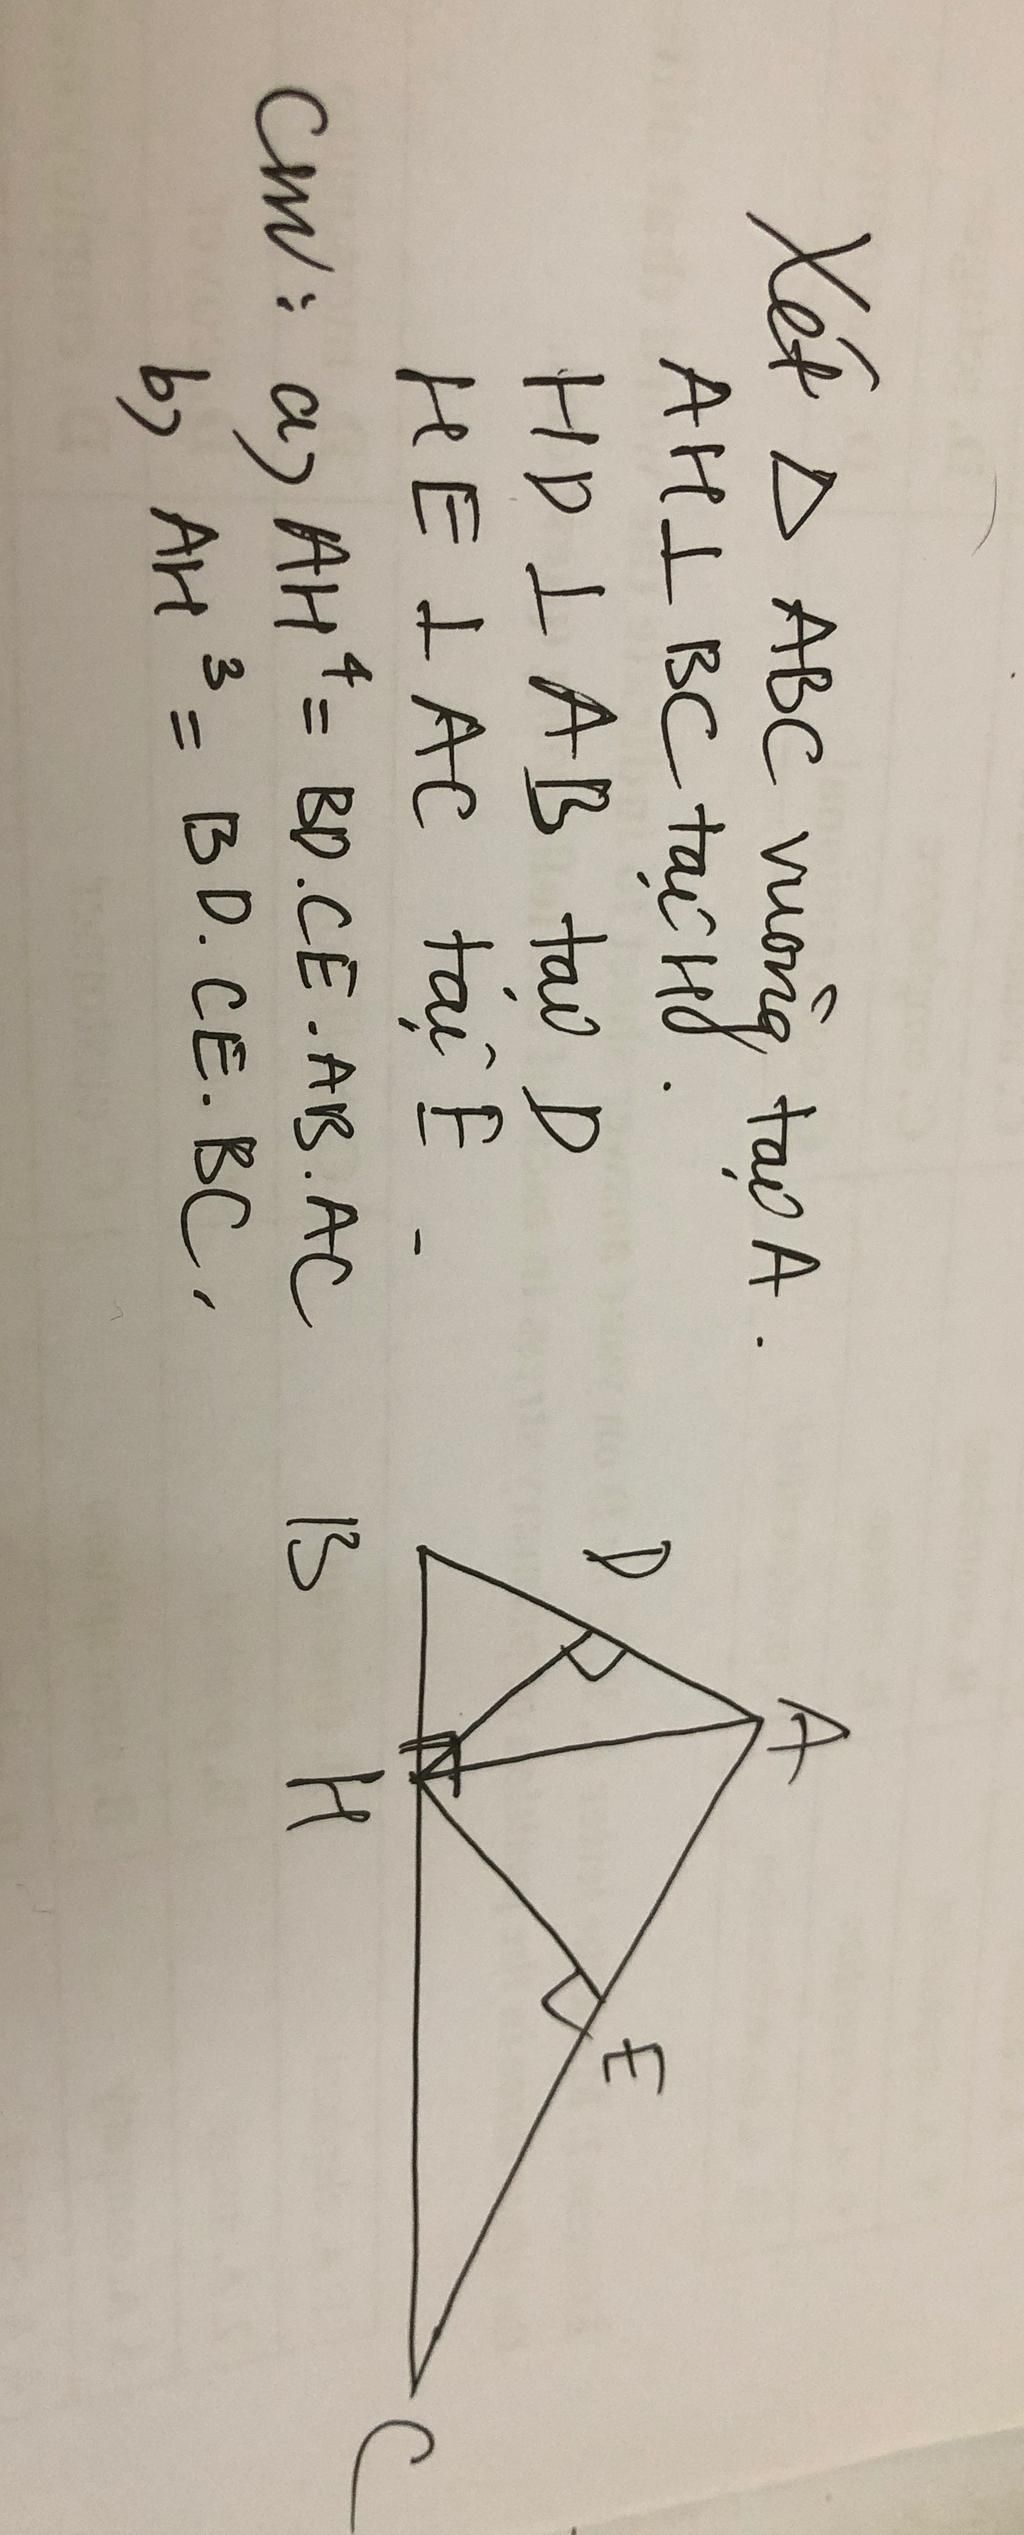 Xét Δ ABC vuông tại A.
AH ⊥ BC tại H.
HD ⊥ AB tại D
HE ⊥ AC tại E.
Cm: a) AH⁴ = BD.CE.AB.AC
b) AH³ = BD.CE.BC.
A
D
E
B
H
C